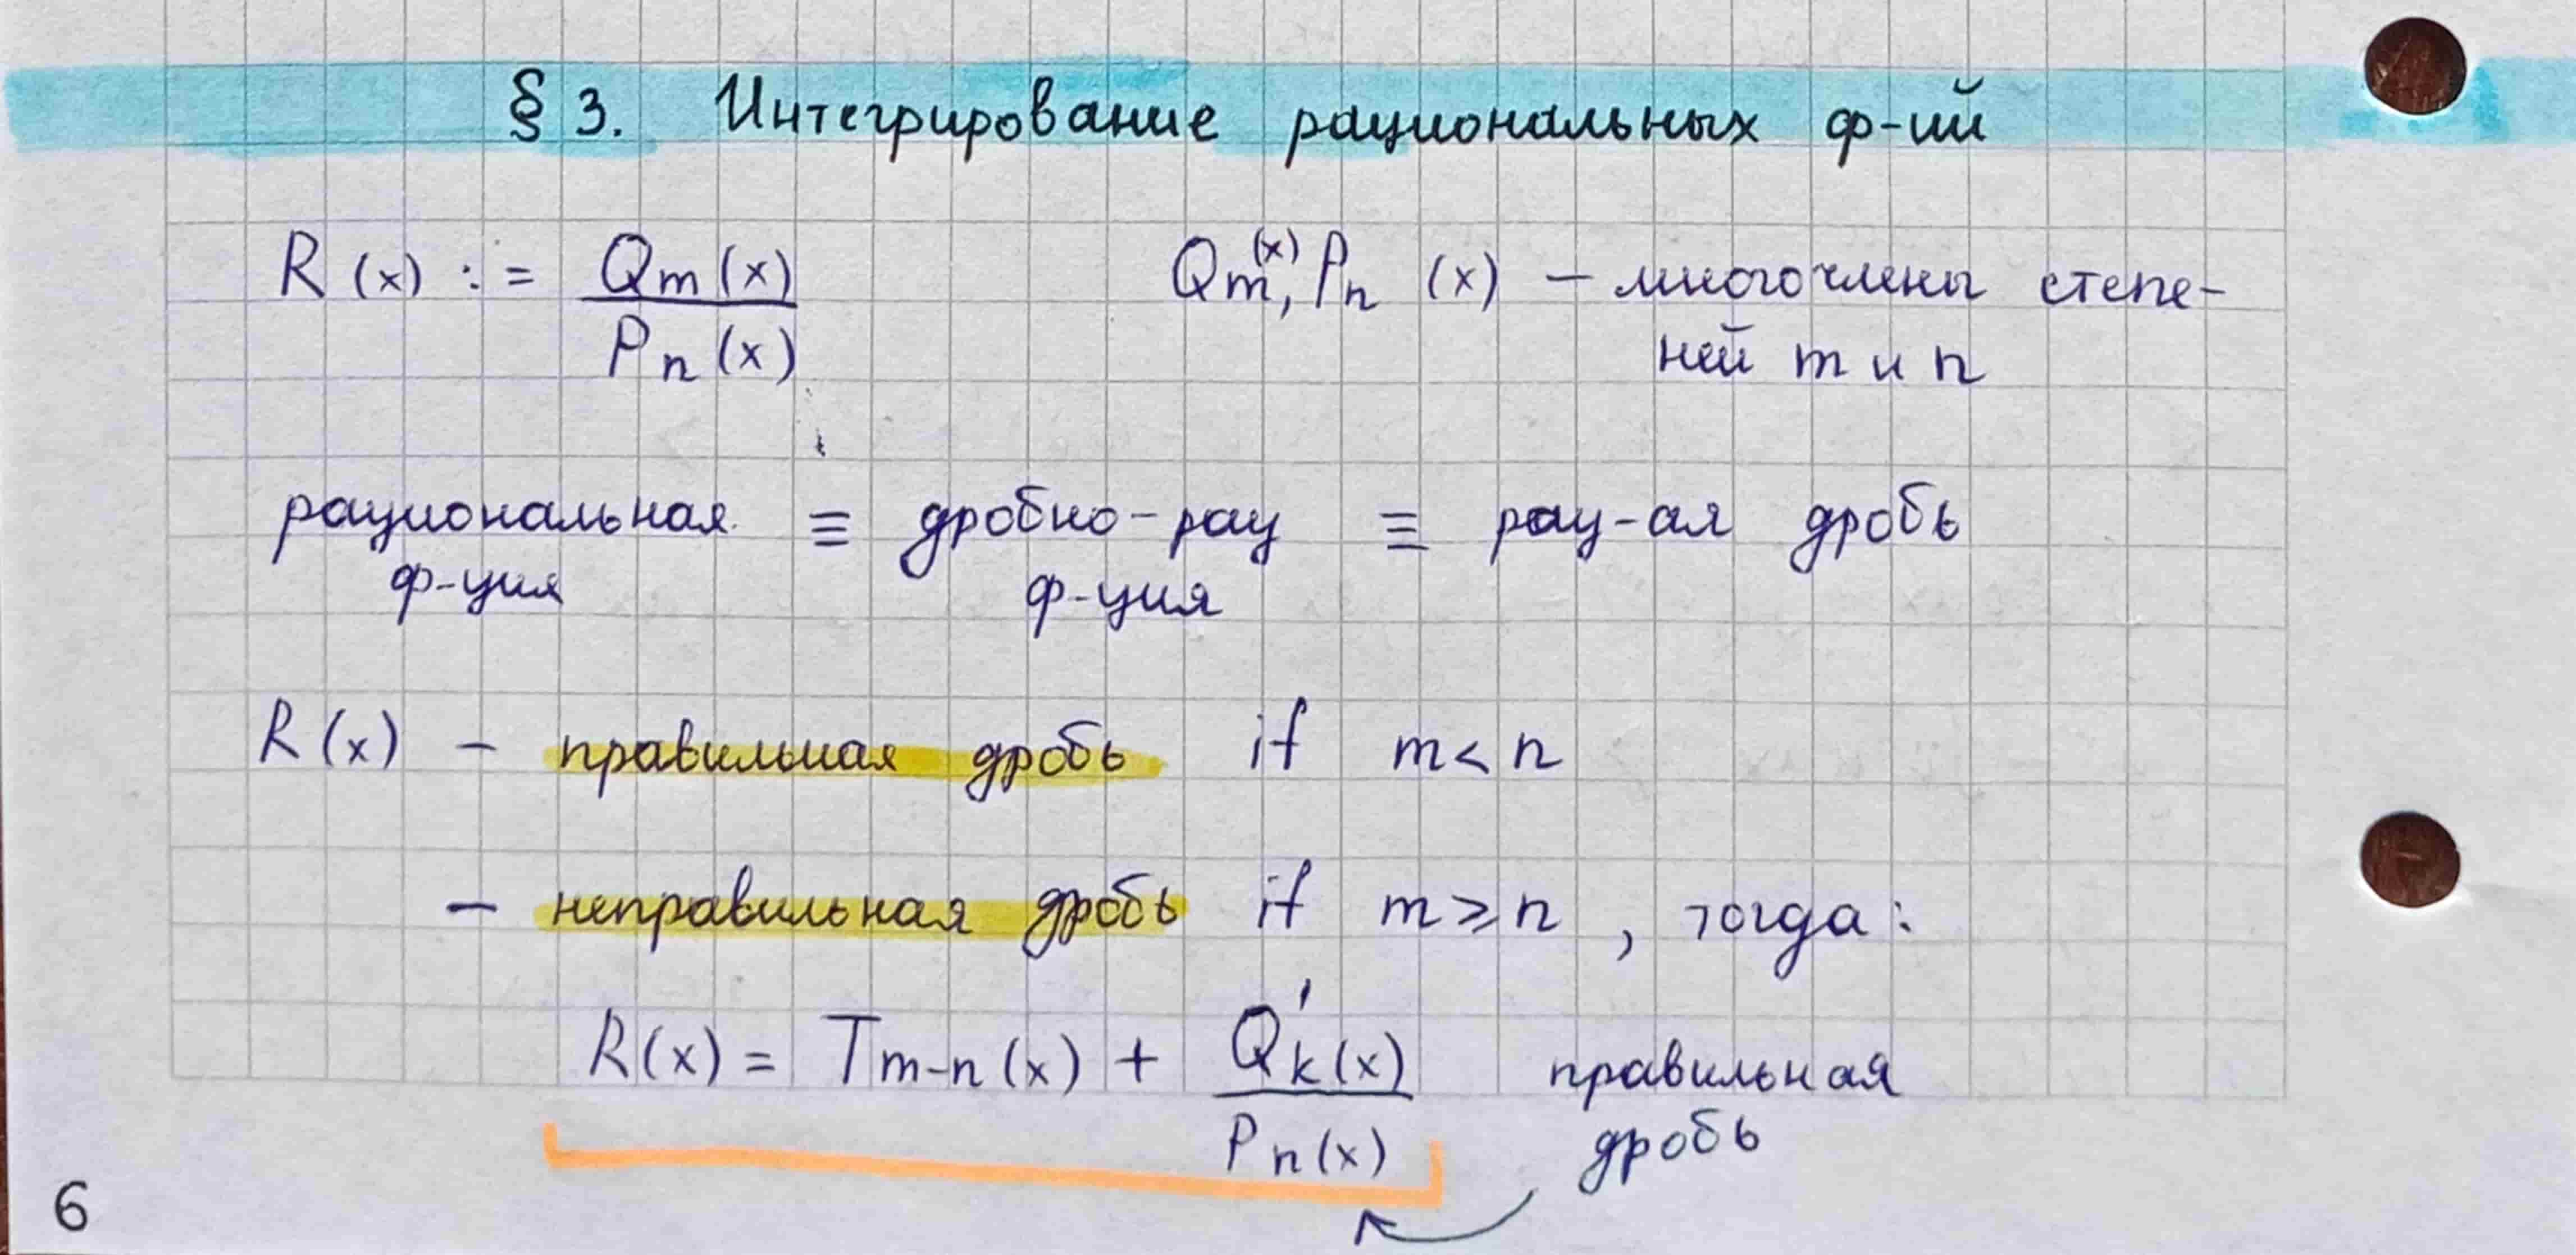 § 3. Интегрирование рациональных ф-ий
R (x) := Qm (x) / Pn (x)     Qm(x), Pn (x) – многочлены степе-
ней m и n
рациональная ≡ дробно-рац ≡ рац-ая дробь
ф-ция     ф-ция
R (x) – правильная дробь if m < n
– неправильная дробь if m ⩾ n , тогда:
R(x) = Tm-n (x) + Q'k (x) / Pn (x)     правильная
дробь
6